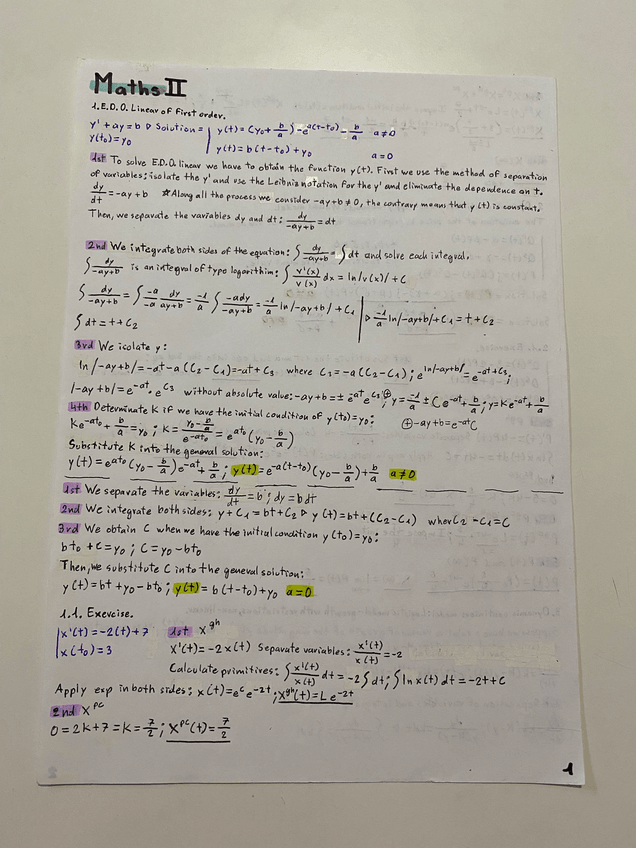 Maths II
1. E.D.O. Linear of First order.
y' + ay = b ▷ Solution = | y(t) = (y₀ + b/a) - e^a(t-t₀) - b/a   a≠0
y(t₀) = y₀   y(t) = b(t-t₀) + y₀   a=0
1st To solve E.D.O. linear we have to obtain the function y(t). First we use the method of separation
of variables; isolate the y' and use the Leibniz notation for the y' and eliminate the dependence on t.
dy/dt = -ay + b   ☆Along all the process we consider -ay+b≠0, the contrary means that y(t) is constant.
Then, we separate the variables dy and dt: dy/-ay+b = dt
2nd We integrate both sides of the equation: ∫ dy/-ay+b = ∫ dt and solve each integral.
∫ dy/-ay+b is an integral of type logarithm: ∫ v'(x)/v(x) dx = ln/v(x)/ + C
∫ dy/-ay+b = ∫ -a/-a dy/ay+b = -1/a ∫ -ady/-ay+b = -1/a ln/-ay+b/ + C₁ | ▷ -1/a ln/-ay+b/ + C₁ = t + C₂
∫ dt = t + C₂
3rd We isolate y:
ln/-ay+b/ = -at - a(C₂ - C₁) = -at + C₃ where C₃ = -a(C₂ - C₁); e^ln/-ay+b/ = e^-at+C₃;
/-ay+b/ = e^-at · e^C₃ without absolute value: -ay+b = ± e^-at e^C₃ ⊕; y = -1/a ± C e^-at + b/a; y = K e^-at + b/a
4th Determinate K if we have the initial condition of y(t₀) = y₀:   ⊕ -ay+b = e^-at C
K e^-at₀ + b/a = y₀; K = y₀ - b/a / e^-at₀ = e^at₀ (y₀ - b/a)
Substitute K into the general solution:
y(t) = e^at₀ (y₀ - b/a) e^-at + b/a; y(t) = e^-a(t-t₀) (y₀ - b/a) + b/a   a≠0
1st We separate the variables: dy/dt = b; dy = b dt
2nd We integrate both sides: y + C₁ = bt + C₂ ▷ y(t) = bt + (C₂ - C₁) wher C₂ - C₁ = C
3rd We obtain C when we have the initial condition y(t₀) = y₀:
bt₀ + C = y₀; C = y₀ - bt₀
Then, we substitute C into the general solution:
y(t) = bt + y₀ - bt₀; y(t) = b(t-t₀) + y₀   a=0
1.1. Exercise.
| x'(t) = -2(t) + 7   1st X^gh
| x(t₀) = 3   X'(t) = -2x(t) Separate variables: x'(t)/x(t) = -2
Calculate primitives: ∫ x'(t)/x(t) dt = -2 ∫ dt; ∫ ln x(t) dt = -2t + C
Apply exp in both sides: x(t) = e^c e^-2t; X^gh(t) = L e^-2t
2nd X^pc
0 = 2K + 7 = K = 7/2; X^pc(t) = 7/2
1